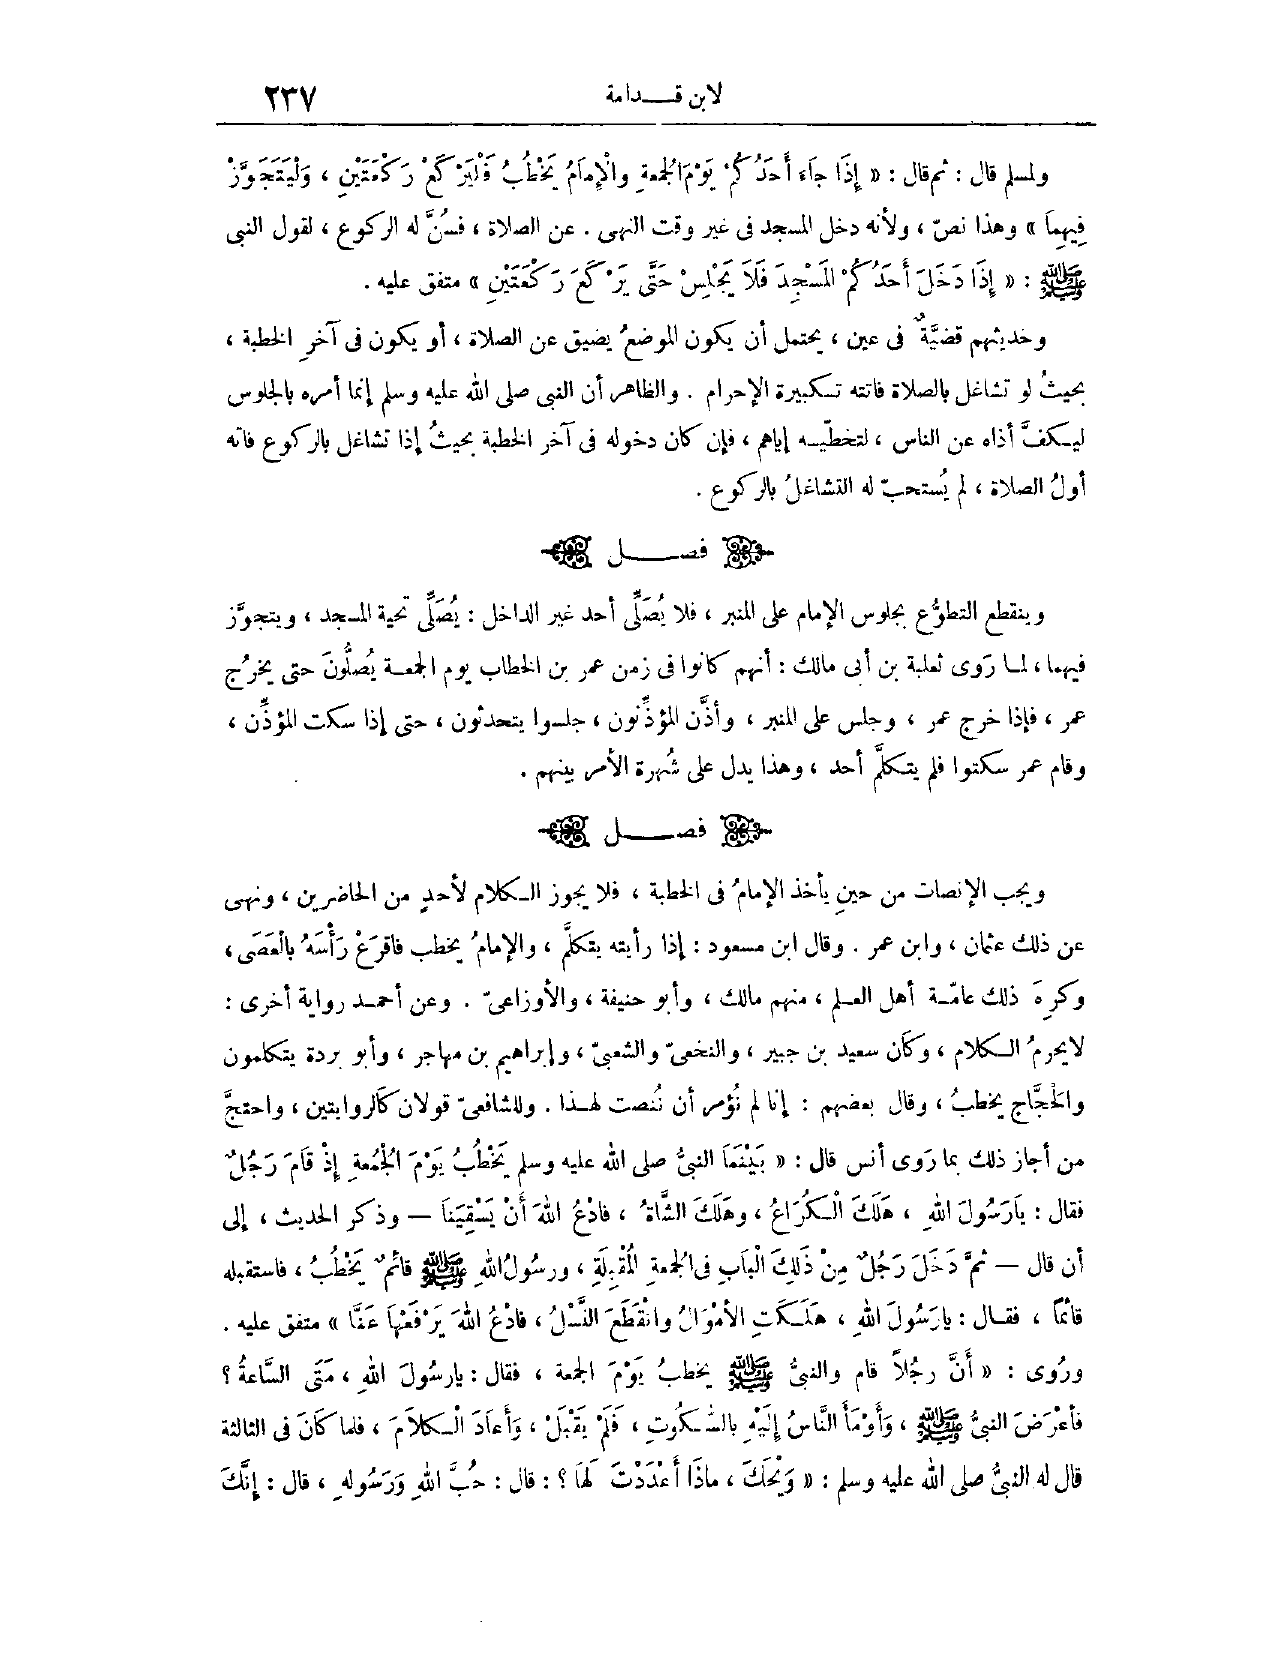 لابن قدامة ٢٣٧
ولمسلم قال : ثم قال : « إِذَا جَاءَ أَحَدُكُمْ يَوْمَ الجُمعةِ والْإِمَامُ يَخْطُبُ فَلْيَرْكَعْ رَكْعَتَيْنِ ، وَلْيَتَجَوَّزْ
فِيهِمَا » وهذا نصّ ، ولأنه دخل المسجد فى غير وقت النهى . عن الصلاة ، فسُنَّ له الركوع ، لقول النبى
ﷺ : « إِذَا دَخَلَ أَحَدُكُمْ الْمَسْجِدَ فَلَا يَجْلِسْ حَتَّى يَرْكَعَ رَكْعَتَيْنِ » متفق عليه .
وحديثهم قضيَّةٌ فى عين ، يحتمل أن يكون الموضعُ يضيق عن الصلاة ، أو يكون فى آخرِ الخطبة ،
بحيثُ لو تشاغل بالصلاة فاتته تكبيرة الإحرام . والظاهر أن النبى صلى الله عليه وسلم إنما أمره بالجلوس
ليكفَّ أذاه عن الناس ، لتخطّيه إياهم ، فإن كان دخوله فى آخر الخطبة بحيثُ إذا تشاغل بالركوع فاته
أولُ الصلاة ، لم يُستحبّ له التشاغلُ بالركوع .
فصل
وينقطع التطوُّع بجلوس الإمام على المنبر ، فلا يُصَلِّى أحد غير الداخل : يُصَلِّى تحية المسجد ، ويتجوَّز
فيهما ، لما رَوى ثعلبة بن أبى مالك : أنهم كانوا فى زمن عمر بن الخطاب يوم الجمعة يُصلُّونَ حتى يخرُج
عمر ، فإذا خرج عمر ، وجلس على المنبر ، وأذَّن المؤذِّنون ، جلسوا يتحدثون ، حتى إذا سكت المؤذِّن ،
وقام عمر سكتوا فلم يتكلَّم أحد ، وهذا يدل على شُهرة الأمر بينهم .
فصل
ويجب الإنصات من حينِ يأخذ الإمامُ فى الخطبة ، فلا يجوز الكلام لأحدٍ من الحاضرين ، ونهى
عن ذلك عثمان ، وابن عمر . وقال ابن مسعود : إذا رأيته يتكلَّم ، والإمامُ يخطب فاقرَعْ رَأْسَهُ بالْعَصَى ،
وكرِهَ ذلك عامّة أهل العلم ، منهم مالك ، وأبو حنيفة ، والأوزاعىّ . وعن أحمد رواية أخرى :
لا يحرمُ الكلام ، وكَان سعيد بن جبير ، والنخعىّ والشعبىّ ، وإبراهيم بن مهاجر ، وأبو بردة يتكلمون
والحَجَّاج يخطبُ ، وقال بعضهم : إنا لم نُؤمر أن نُنصت لهذا . وللشافعىّ قولان كالروايتين ، واحتجَّ
من أجاز ذلك بما رَوى أنس قال : « بَيْنَمَا النبىُّ صلى الله عليه وسلم يَخْطُبُ يَوْمَ الْجُمُعةِ إِذْ قَامَ رَجُلٌ
فقال : يَارَسُولَ اللهِ ، هَلَكَ الْكُرَاعُ ، وهَلَكَ الشَّاةُ ، فادْعُ اللهَ أَنْ يَسْقِيَنَا — وذكر الحديث ، إلى
أن قال — ثمَّ دَخَلَ رَجُلٌ مِنْ ذَلِكَ الْبَابِ فى الجُمعةِ الْمُقْبِلَةِ ، ورسُولُ اللهِ ﷺ قائمٌ يَخْطُبُ ، فاستقبله
قائمًا ، فقال : يارَسُولَ اللهِ ، هَلَكَتِ الأمْوَالُ وانْقَطَعَ النَّسْلُ ، فادْعُ اللهَ يَرْفَعْهَا عَنَّا » متفق عليه .
ورُوى : « أَنَّ رجُلاً قام والنبىُّ ﷺ يخطبُ يَوْمَ الجمعة ، فقال : يارسُولَ اللهِ ، مَتَى السَّاعةُ ؟
فأَعْرَضَ النبىُّ ﷺ ، وَأَوْمَأَ النَّاسُ إِلَيْهِ بالسُّكُوتِ ، فَلَمْ يَقْبَلْ ، وَأَعَادَ الْكلاَمَ ، فلما كَانَ فى الثالثة
قال له النبىُّ صلى الله عليه وسلم : « وَيْحَكَ ، ماذَا أَعْدَدْتَ لَهَا ؟ : قال : حُبَّ اللهِ وَرَسُولِهِ ، قال : إِنَّكَ